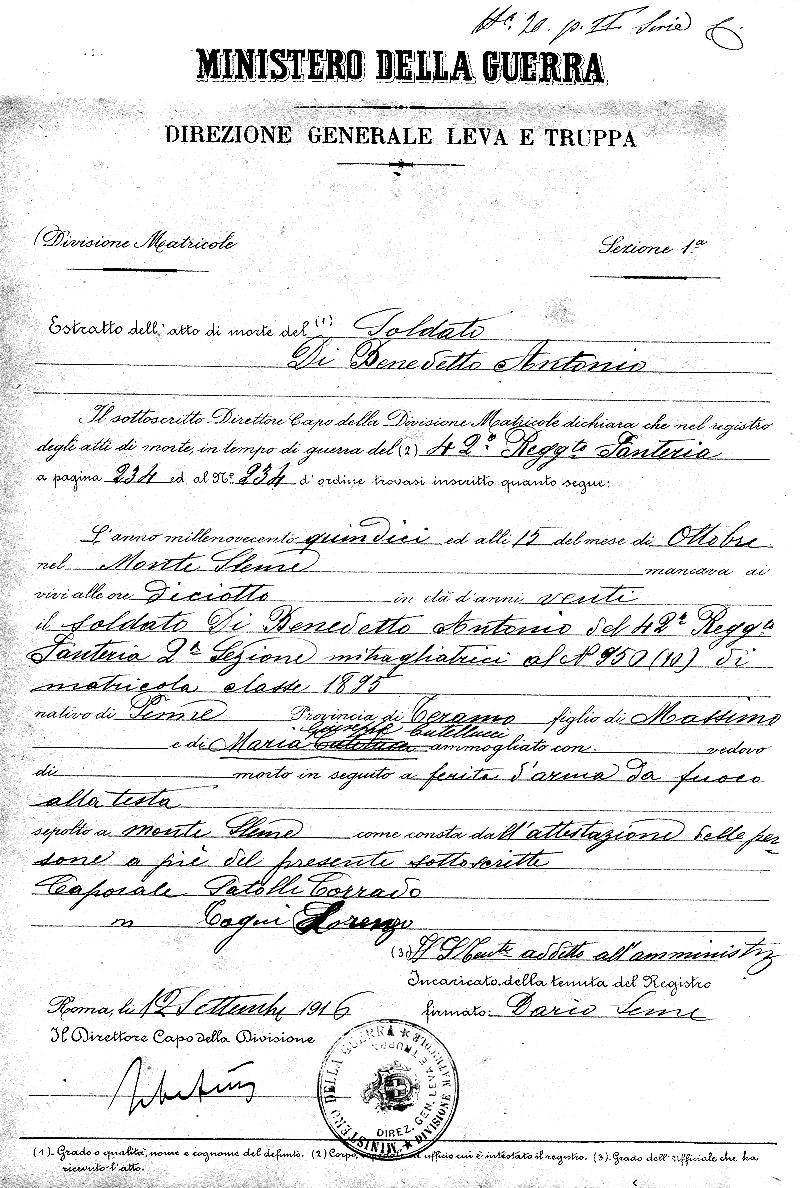 N.º 20. p. II Serie C
MINISTERO DELLA GUERRA
DIREZIONE GENERALE LEVA E TRUPPA
Divisione Matricole
Sezione 1.ª
Estratto dell'atto di morte del (1) Soldato
Di Benedetto Antonio
Il sottoscritto Direttore Capo della Divisione Matricole dichiara che nel registro
degli atti di morte, in tempo di guerra del (2) 42º Reggto Fanteria
a pagina 234 ed al Nº 234 d'ordine trovasi inscritto quanto segue:
L'anno millenovecento quindici ed alli 15 del mese di Ottobre
nel Monte Sleme mancava ai
vivi alle ore diciotto in età d'anni venti
il soldato Di Benedetto Antonio del 42º Reggto
Fanteria 2ª Sezione mitragliatrici al Nº 950 (10) di
matricola classe 1895
nativo di Penne Provincia di Teramo figlio di Massimo
Giuseppa Cutellucci
e di Maria ammogliato con vedovo
di morto in seguito a ferita d'arma da fuoco
alla testa
sepolto a monte Sleme come consta dall'attestazione delle per-
sone a piè del presente sottoscritte
Caporale Patolli Corrado
m Cogni Lorenzo
(3) Il S. Tente addetto all'amministraz
Incaricato della tenuta del Registro
Roma, li 12 Settembre 1916
firmato: Dario Seme
Il Direttore Capo della Divisione
MINISTERO DELLA GUERRA
DIVISIONE MATRICOLE
DIREZ. GEN. LEVA E TRUPPA
(1) Grado o qualità, nome e cognome del defunto. (2) Corpo, ufficio cui è intestato il registro. (3) Grado dell'Ufficiale che ha
ricevuto l'atto.